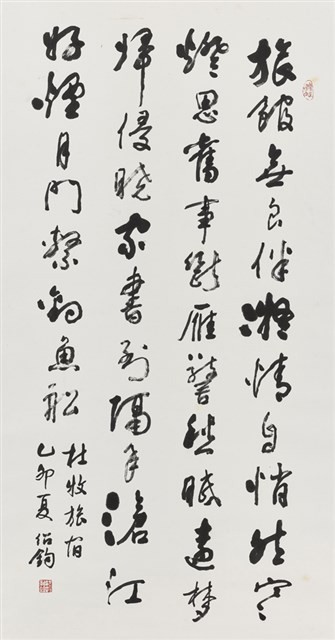 旅館無良伴凝情自悄然寒
燈思舊事斷雁警愁眠遠夢
歸侵曉家書到隔年滄江
好煙月門繫釣魚船
杜牧旅宿
乙卯夏 紹鈞